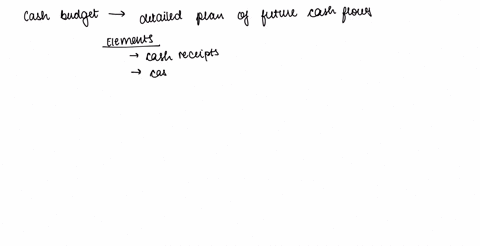 Cash budget → detailed plan of future cash flows
Elements
→ cash receipts
→ cas